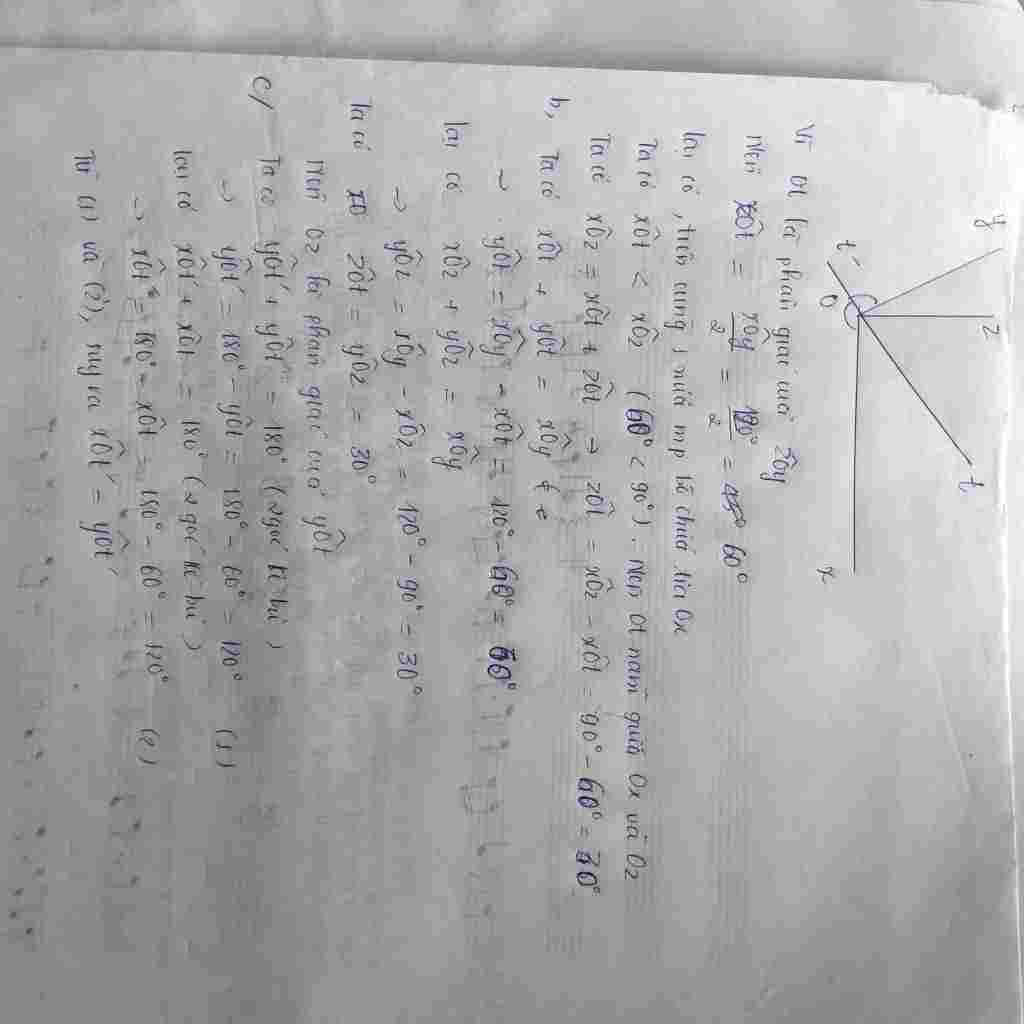 y
z
t'
O
t
x
Vì Ot là phân giác của xÔy
Nên xÔt = xÔy/2 = 120°/2 = 60°
Lại có, trên cùng 1 nửa mp bờ chứa tia Ox
Ta có xÔt < xÔz (60° < 90°). Nên Ot nằm giữa Ox và Oz
Ta có xÔz = xÔt + zÔt → zÔt = xÔz - xÔt = 90° - 60° = 30°
b, Ta có xÔt + yÔt = xÔy
→ yÔt = xÔy - xÔt = 120° - 60° = 60°
Lại có xÔz + yÔz = xÔy
→ yÔz = xÔy - xÔz = 120° - 90° = 30°
Ta có zÔt = yÔz = 30°
Nên Oz là phân giác của yÔt
c/ Ta có yÔt' + yÔt = 180° (2 góc kề bù)
→ yÔt' = 180° - yÔt = 180° - 60° = 120° (1)
Lại có xÔt' + xÔt = 180° (2 góc kề bù)
→ xÔt' = 180° - xÔt = 180° - 60° = 120° (2)
Từ (1) và (2), suy ra xÔt' = yÔt'